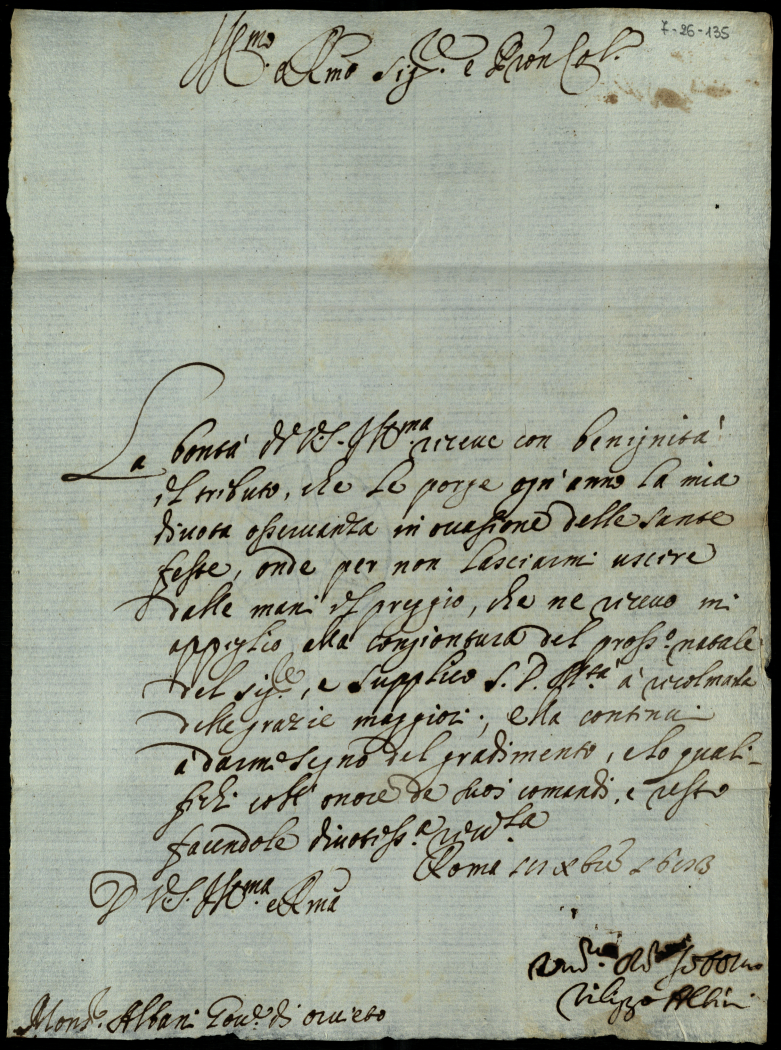 7-26-135
Ill.mo e R.mo Sig.re e Pron Col.
La bontà di V.S. Ill.ma riceve con benignità
il tributo, che le porge ogn'anno la mia
divota osservanza in occasione delle sante
feste, onde per non lasciarmi uscire
dalle mani il preggio, che ne ricevo mi
appiglio alla congiontura del pross.o natale
del Sig.re, e supplico S. D. M.tà à ricolmarla
delle grazie maggiori; ella continui
à darmi segno del gradimento, e lo quali-
fichi coll'onore de suoi comandi, e resto
facendole divotiss.a riv.za
Roma xbre
D V.S. Ill.ma e R.ma
Filippo Albini
Mons.r Albani Gov.re di Orvieto